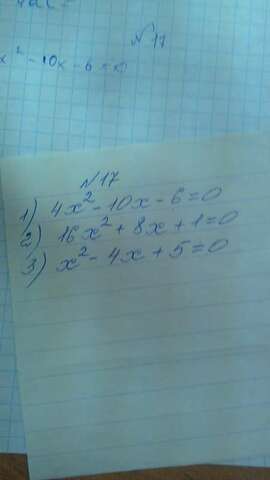 №17
x² - 10x - 6 = 0
№17
1) 4x² - 10x - 6 = 0
2) 16x² + 8x + 1 = 0
3) x² - 4x + 5 = 0